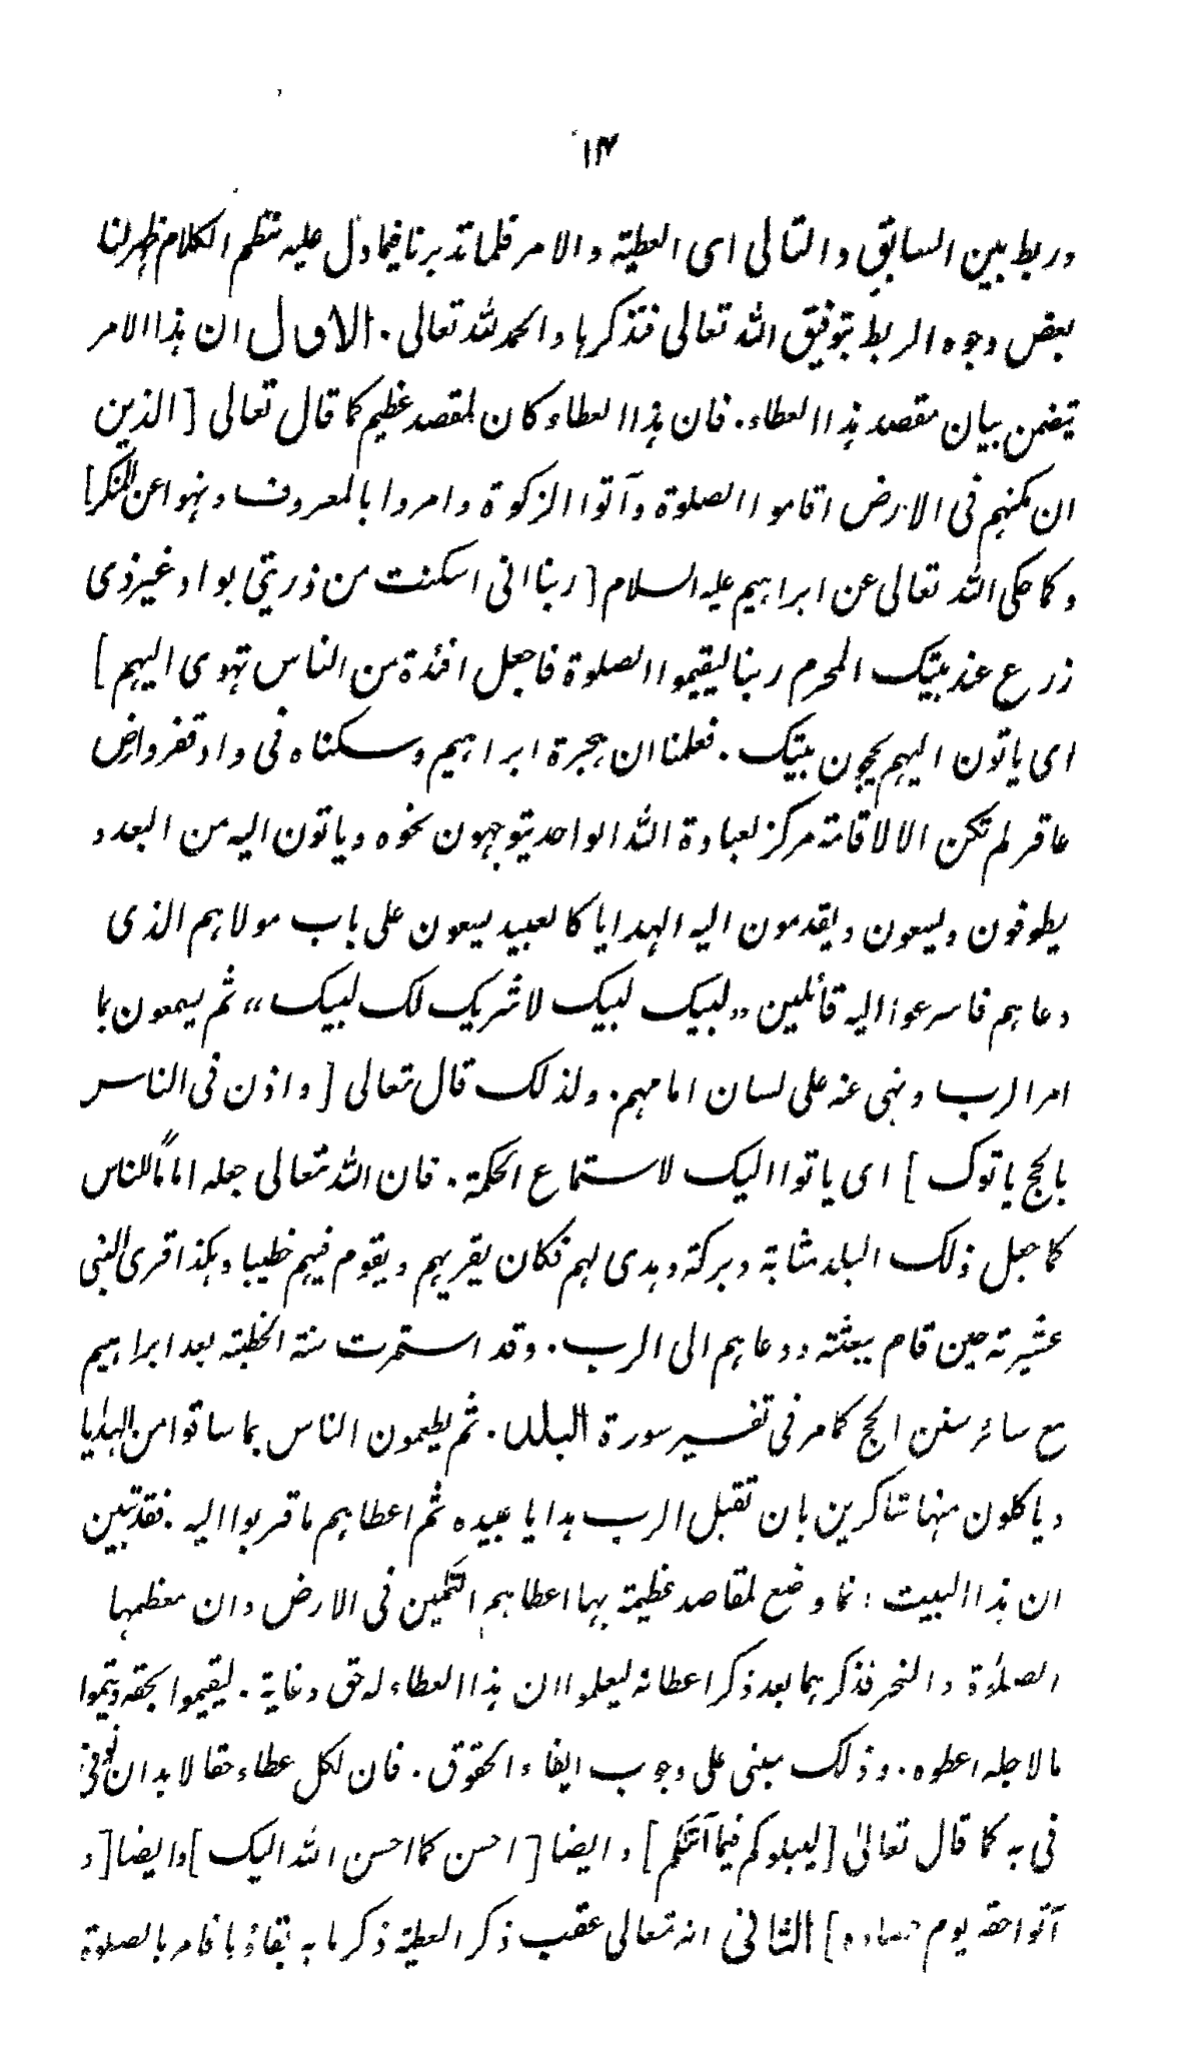 ۱۴
وربط بين السابق والتالى اى العطية والامر فلما تدبرنا فيما دل عليه نظم الكلام ظهر لنا
بعض وجوه الربط بتوفيق الله تعالى فنذكرها والحمد لله تعالى. الاول ان هذا الامر
تيضمن بيان مقصد هذا العطاء. فان هذا العطاء كان لمقصد عظيم كما قال تعالى [الذين
ان مكنهم فى الارض اقاموا الصلوة وآتوا الزكوة وامروا بالمعروف ونهوا عن المنكر]
وكما حكى الله تعالى عن ابراهيم عليه السلام [ربنا انى اسكنت من ذريتى بواد غير ذى
زرع عند بيتك المحرم ربنا ليقيموا الصلوة فاجعل افئدة من الناس تهوى اليهم]
اى ياتون اليهم يحجون بيتك. فعلمنا ان هجرة ابراهيم وسكناه فى واد قفر وارض
عاقر لم تكن الا لاقامة مركز لعبادة الله الواحد يتوجهون نحوه وياتون اليه من البعد و
يطوفون ويسعون ويقدمون اليه الهدايا كالعبيد يسعون على باب مولاهم الذى
دعاهم فاسرعوا اليه قائلين ،،لبيك لبيك لا شريك لك لبيك،، ثم يسمعون بما
امر الرب ونهى عنه على لسان امامهم. ولذلك قال تعالى [واذن فى الناس
بالحج ياتوك] اى ياتوا اليك لاستماع الحكمة. فان الله تعالى جعله اماما للناس
كما جعل ذلك البلد مثابة وبركة وهدى لهم فكان يقريهم ويقوم فيهم خطيبا وهكذا قرى النبى
عشيرته حين قام ببعثته ودعاهم الى الرب. وقد استمرت سنة الخطبة بعد ابراهيم
مع سائر سنن الحج كما مر فى تفسير سورة البلد. ثم يطعمون الناس بما ساقوا من الهدايا
وياكلون منها شاكرين بان تقبل الرب هدايا عبيده ثم اعطاهم ما قربوا اليه. فقد تبين
ان هذا البيت انما وضع لمقاصد عظيمة بها اعطاهم التمكين فى الارض وان معظمها
الصلوٰة والنحر فذكرهما بعد ذكر اعطائه ليعلموا ان هذا العطاء له حق وغاية. ليقيموا بحقه ويتموا
ما لاجله اعطوه. وذلك مبنى على وجوب ايفاء الحقوق. فان لكل عطاء حقا لا بد ان نوفى
فى به كما قال تعالىٰ [ليبلوكم فيما آتٰكم] وايضا [احسن كما احسن الله اليك] وايضا [و
آتوا حقه يوم حصاده] الثانى انه تعالى عقب ذكر العطية ذكر ما به بقاؤها فامر بالصلوة